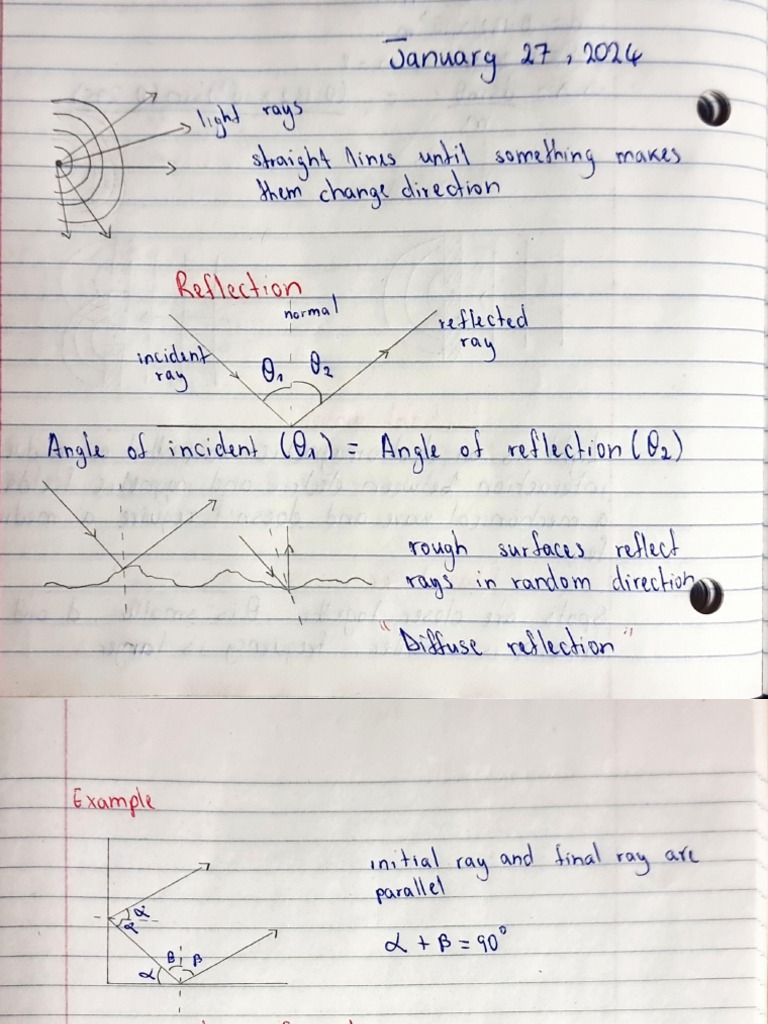 January 27, 2024
light rays
straight lines until something makes
them change direction
Reflection
normal
incident
ray
θ1 θ2
reflected
ray
Angle of incident (θ1) = Angle of reflection (θ2)
rough surfaces reflect
rays in random direction
"Diffuse reflection"
Example
initial ray and final ray are
parallel
α
α
α + β = 90°
β β
α